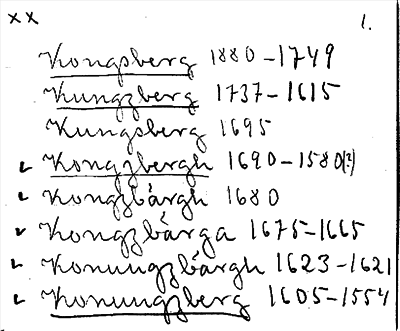 xx 1.
Kongsberg 1880-1749
Kungzberg 1737-1615
Kungsberg 1695
✓ Kongzbergh 1690-1580(?)
✓ Kongzbärgh 1680
✓ Kongzbärga 1675-1665
✓ Konungzbärgh 1623-1621
✓ Konungzberg 1605-1554